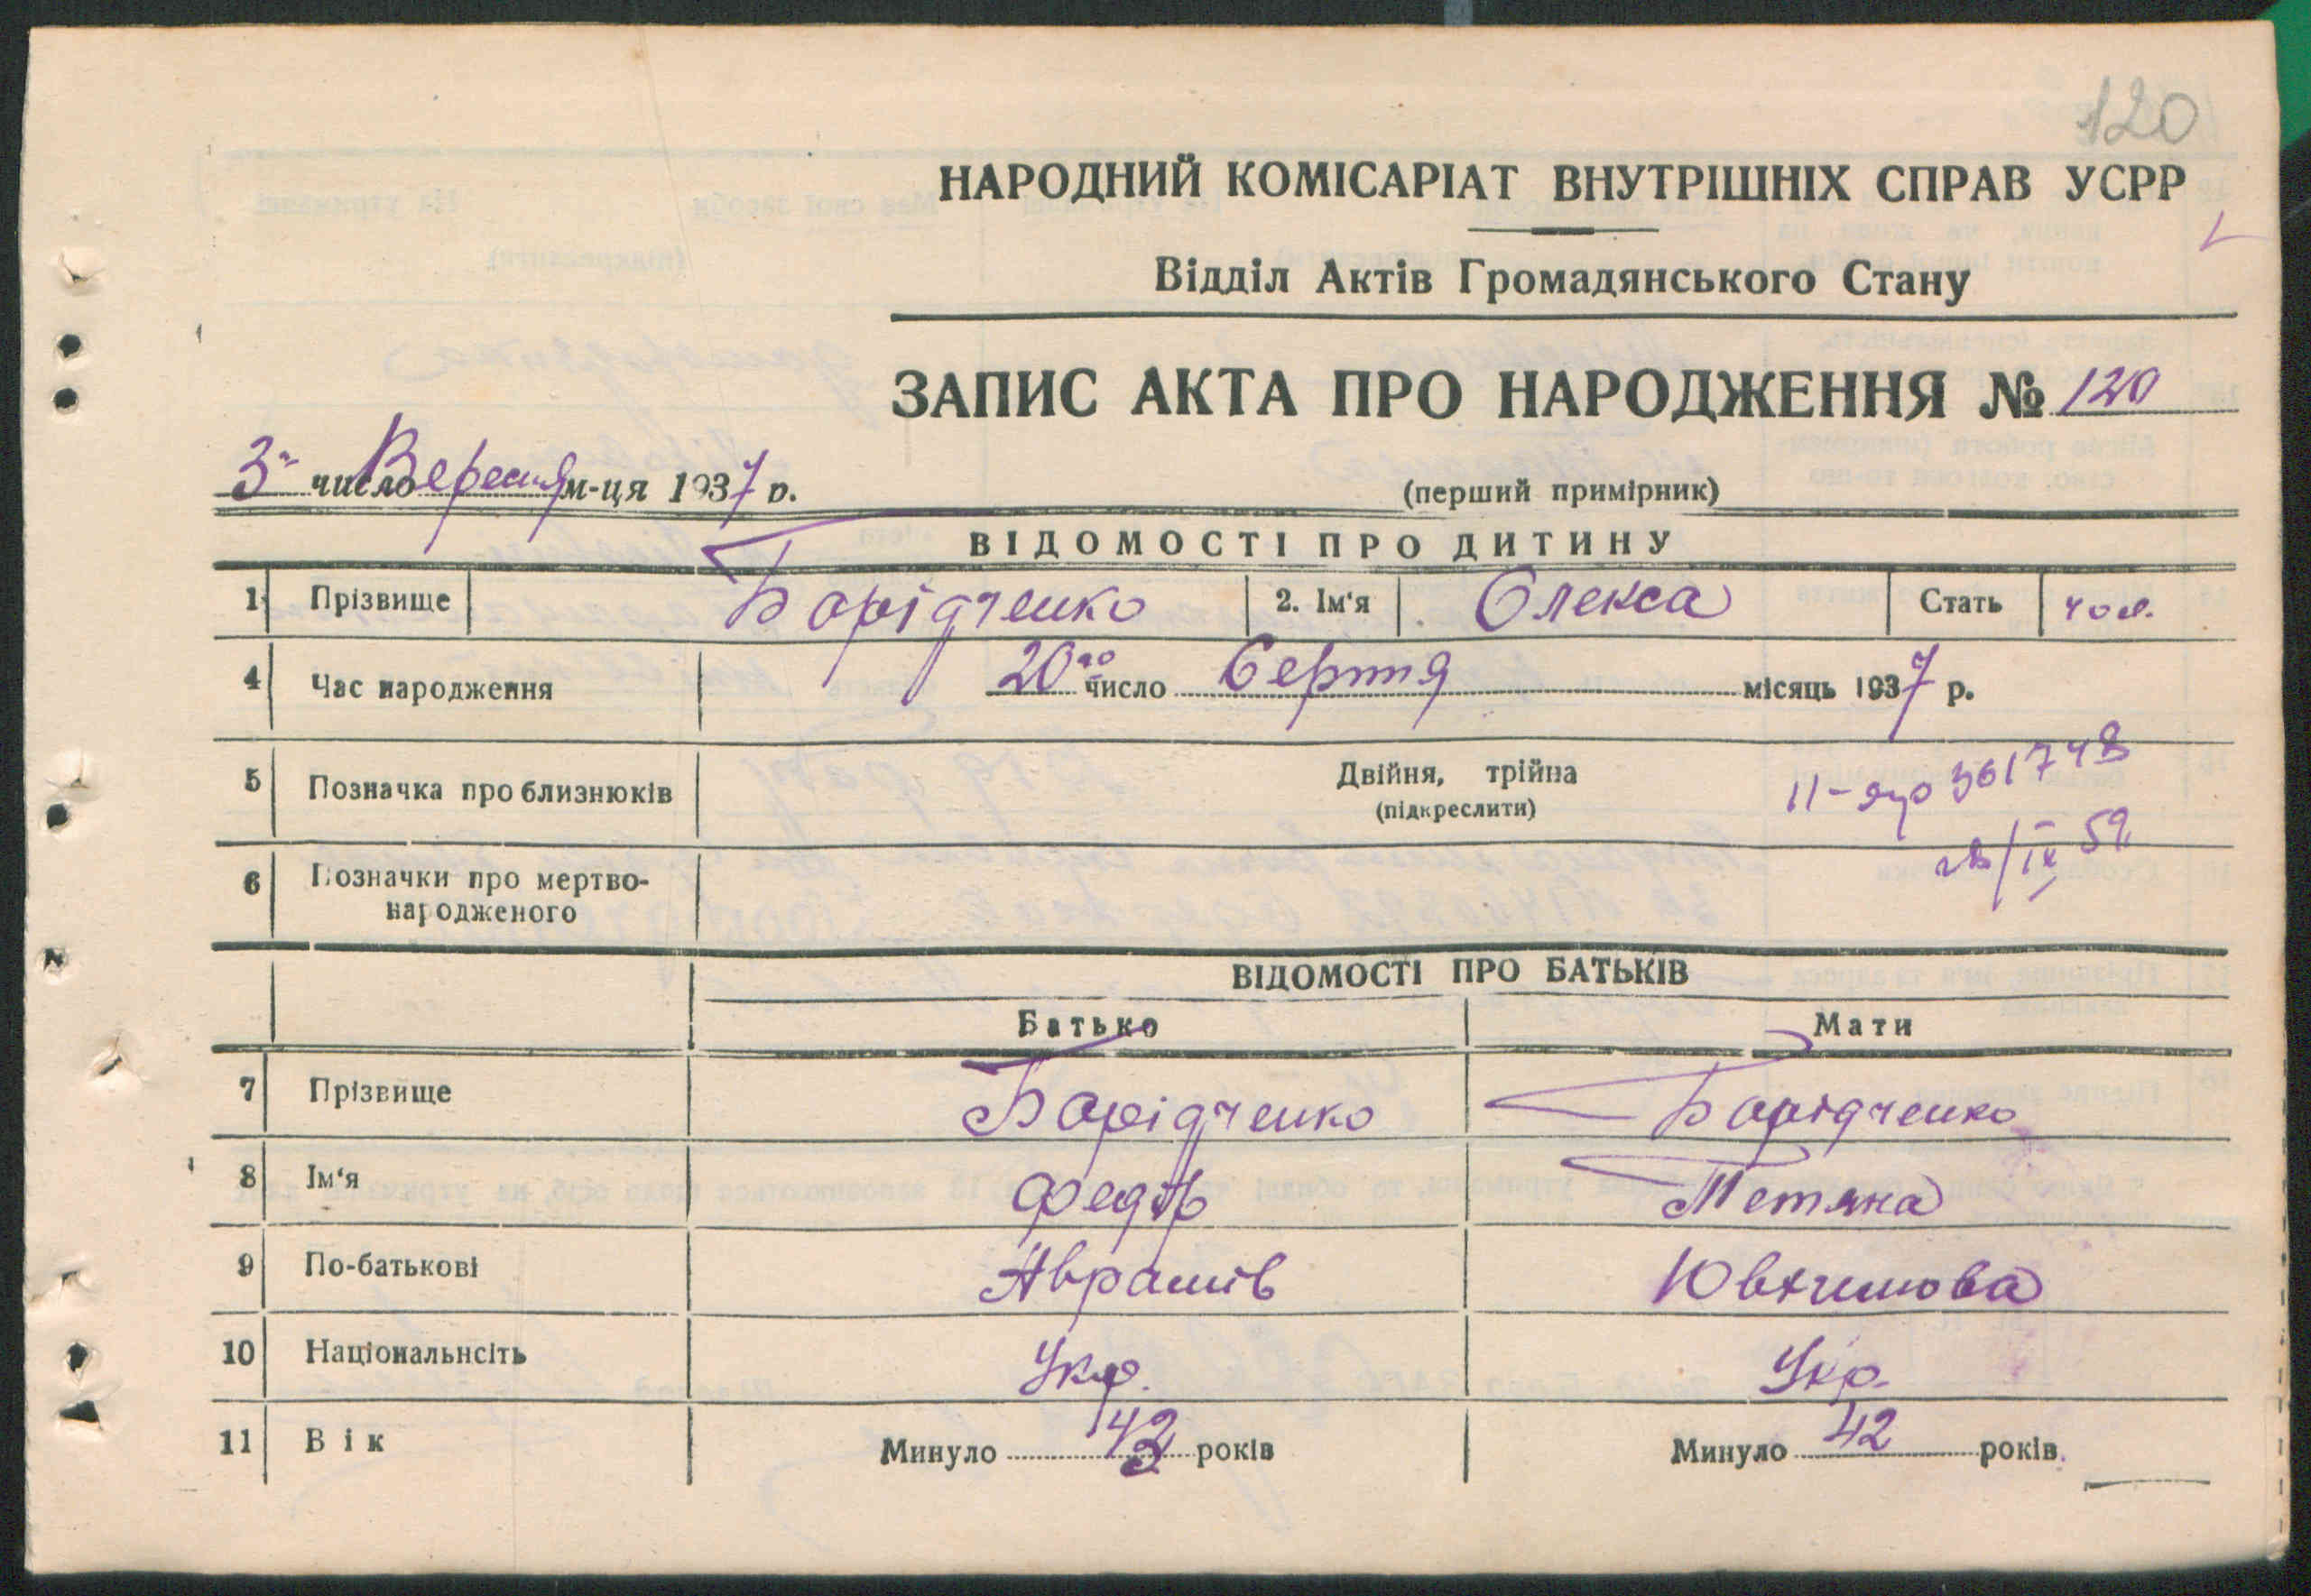 120
НАРОДНИЙ КОМІСАРІАТ ВНУТРІШНІХ СПРАВ УСРР
Відділ Актів Громадянського Стану
ЗАПИС АКТА ПРО НАРОДЖЕННЯ № 120
3 число Вересня м-ця 1937 р.
(перший примірник)
ВІДОМОСТІ ПРО ДИТИНУ
1 Прізвище Борідченко 2. Ім'я Олекса Стать чол.
4 Час народження 20го число Серпня місяць 1937 р.
5 Позначка про близнюків Двійня, трійна
(підкреслити)
II- 361748
28/IX 59
6 Позначки про мертво-
народженого
ВІДОМОСТІ ПРО БАТЬКІВ
Батько Мати
7 Прізвище Борідченко Борідченко
8 Ім'я Федір Тетяна
9 По-батькові Аврамів Ювхимова
10 Національнсіть Укр. Укр.
11 Вік Минуло 42 років Минуло 42 років.